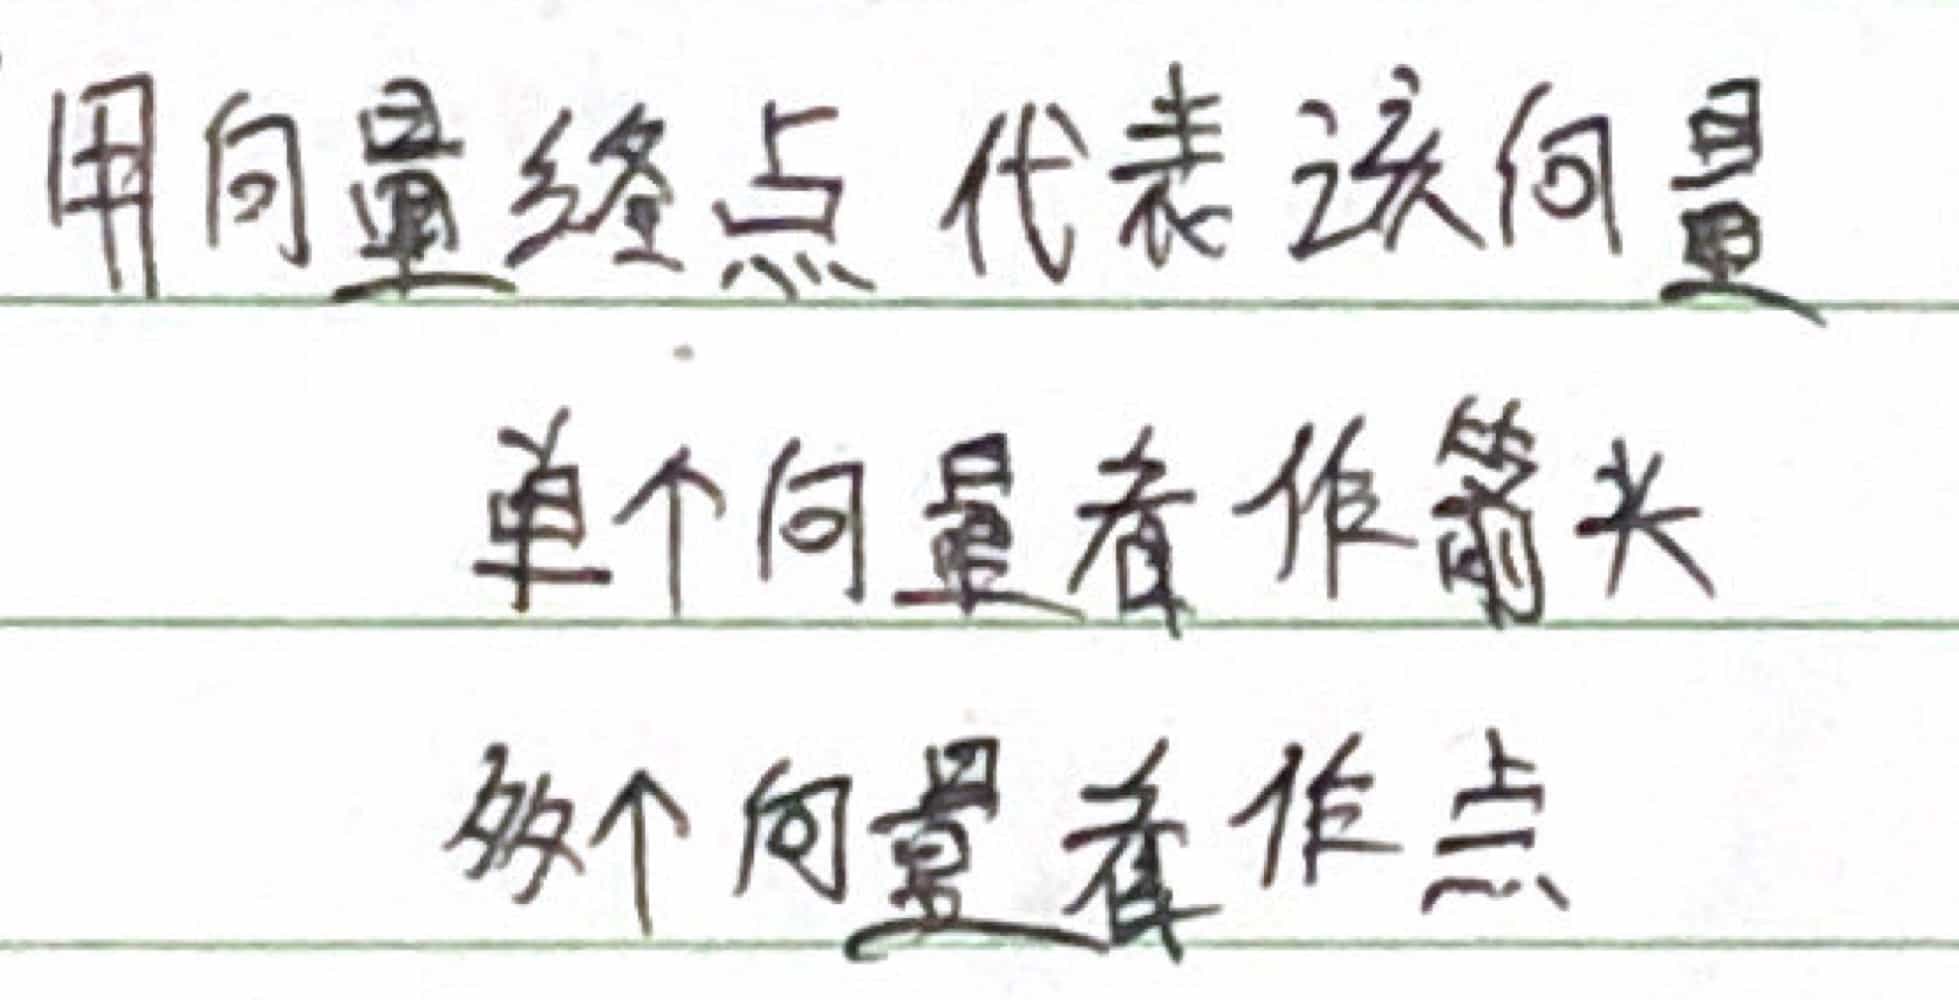 用向量终点代表该向量
单个向量看作箭头
多个向量看作点